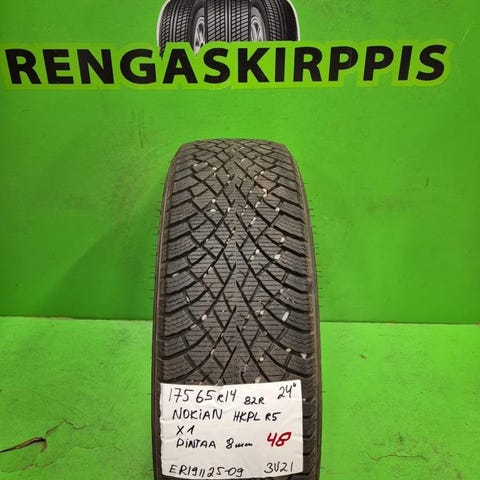 RENGASKIRPPIS
175 65R14 82R 24"
NOKIAN HKPL R5
X1
PINTAA 8mm 48
ER19112509 3V21